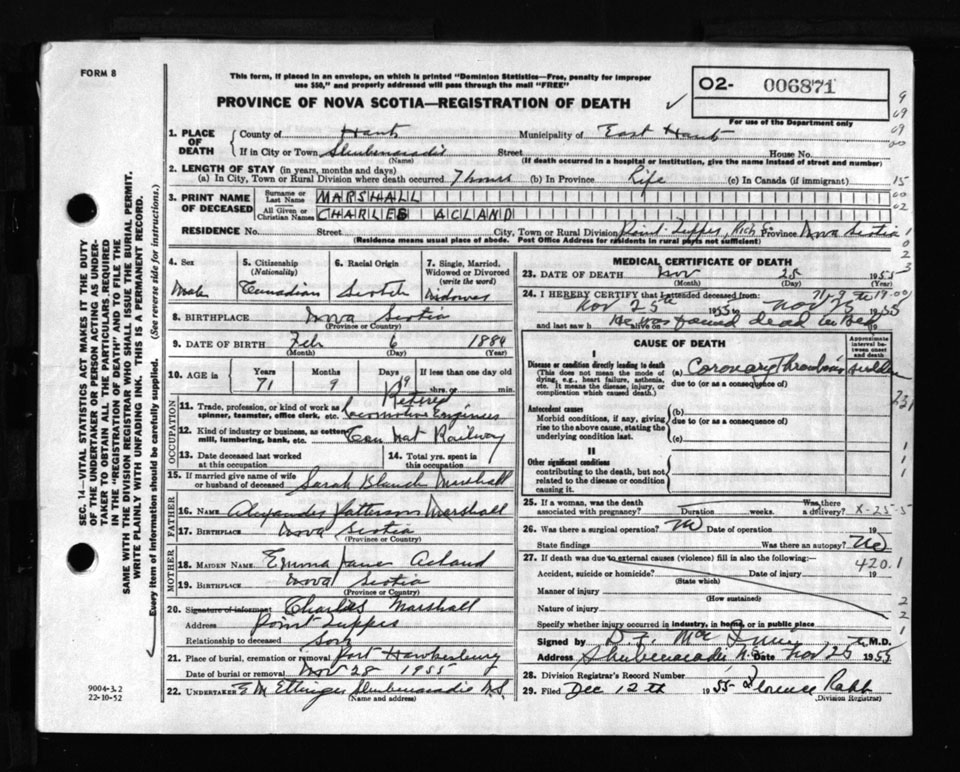 FORM 8
This form, if placed in an envelope, on which is printed "Dominion Statistics—Free, penalty for improper
use $50," and properly addressed will pass through the mail "FREE"
PROVINCE OF NOVA SCOTIA—REGISTRATION OF DEATH
02- 006871
For use of the Department only
SEC. 14—VITAL STATISTICS ACT MAKES IT THE DUTY
OF THE UNDERTAKER OR PERSON ACTING AS UNDER-
TAKER TO OBTAIN ALL THE PARTICULARS REQUIRED
IN THE "REGISTRATION OF DEATH" AND TO FILE THE
SAME WITH THE DIVISION REGISTRAR WHO SHALL ISSUE THE BURIAL PERMIT.
WRITE PLAINLY WITH UNFADING INK. THIS IS A PERMANENT RECORD.
Every item of information should be carefully supplied. (See reverse side for instructions.)
1. PLACE OF DEATH County of Hants Municipality of East Hants
If in City or Town Shubenacadie Street House No.
(Name) (If death occurred in a hospital or institution, give the name instead of street and number)
2. LENGTH OF STAY (in years, months and days)
(a) In City, Town or Rural Division where death occurred. 7 hours (b) In Province Life (c) In Canada (if immigrant)
3. PRINT NAME OF DECEASED Surname or Last Name MARSHALL
All Given or Christian Names CHARLES ACLAND
RESIDENCE No. Street City, Town or Rural Division Point Tupper, Rich Province Nova Scotia
(Residence means usual place of abode. Post Office Address for residents in rural parts not sufficient)
4. Sex Male
5. Citizenship (Nationality) Canadian
6. Racial Origin Scotch
7. Single, Married, Widowed or Divorced (write the word) Widower
8. BIRTHPLACE Nova Scotia
(Province or Country)
9. DATE OF BIRTH Feb 6 1884
(Month) (Day) (Year)
10. AGE in Years 71 Months 9 Days 19 If less than one day hrs. or min.
OCCUPATION
11. Trade, profession, or kind of work as spinner, teamster, office clerk, etc. Retired Locomotive Engineer
12. Kind of industry or business, as cotton mill, lumbering, bank, etc. Can Nat Railway
13. Date deceased last worked at this occupation
14. Total yrs. spent in this occupation
15. If married give name of wife or husband of deceased Sarah Blanch Marshall
FATHER
16. NAME Alexander Patterson Marshall
17. BIRTHPLACE Nova Scotia
(Province or Country)
MOTHER
18. MAIDEN NAME Emma Jane Acland
19. BIRTHPLACE Nova Scotia
(Province or Country)
20. Signature of informant Charles Marshall
Address Point Tupper
Relationship to deceased Son
21. Place of burial, cremation or removal Port Hawkesbury
Date of burial or removal Nov 28 1955
22. UNDERTAKER E M Ettinger Shubenacadie N.S.
(Name and address)
9004-3.2
22-10-52
MEDICAL CERTIFICATE OF DEATH
23. DATE OF DEATH Nov 25 1955
(Month) (Day) (Year)
24. I HEREBY CERTIFY that I attended deceased from:
Nov 25th 1955 to Nov 25 1955
and last saw h alive on He was found dead in bed 19
CAUSE OF DEATH
Approximate interval between onset and death
I
Disease or condition directly leading to death
(This does not mean the mode of dying, e.g., heart failure, asthenia, etc. It means the disease, injury, or complication which caused death.)
(a) Coronary Thrombosis sudden
due to (or as a consequence of)
Antecedent causes
Morbid conditions, if any, giving rise to the above cause, stating the underlying condition last.
(b)
due to (or as a consequence of)
(c)
II
Other significant conditions
contributing to the death, but not related to the disease or condition causing it.
25. If a woman, was the death associated with pregnancy? Duration weeks. Was there a delivery? X-25-5
26. Was there a surgical operation? No Date of operation 19
State findings Was there an autopsy? No
27. If death was due to external causes (violence) fill in also the following:- 420.1
Accident, suicide or homicide? Date of injury 19
(State which)
Manner of injury
(How sustained)
Nature of injury
Specify whether injury occurred in industry, in home, or in public place
Signed by M.D.
Address Shubenacadie N.S. Date Nov 25th 1955
28. Division Registrar's Record Number
29. Filed Dec 12th 1955 Florence Rabb
(Division Registrar)